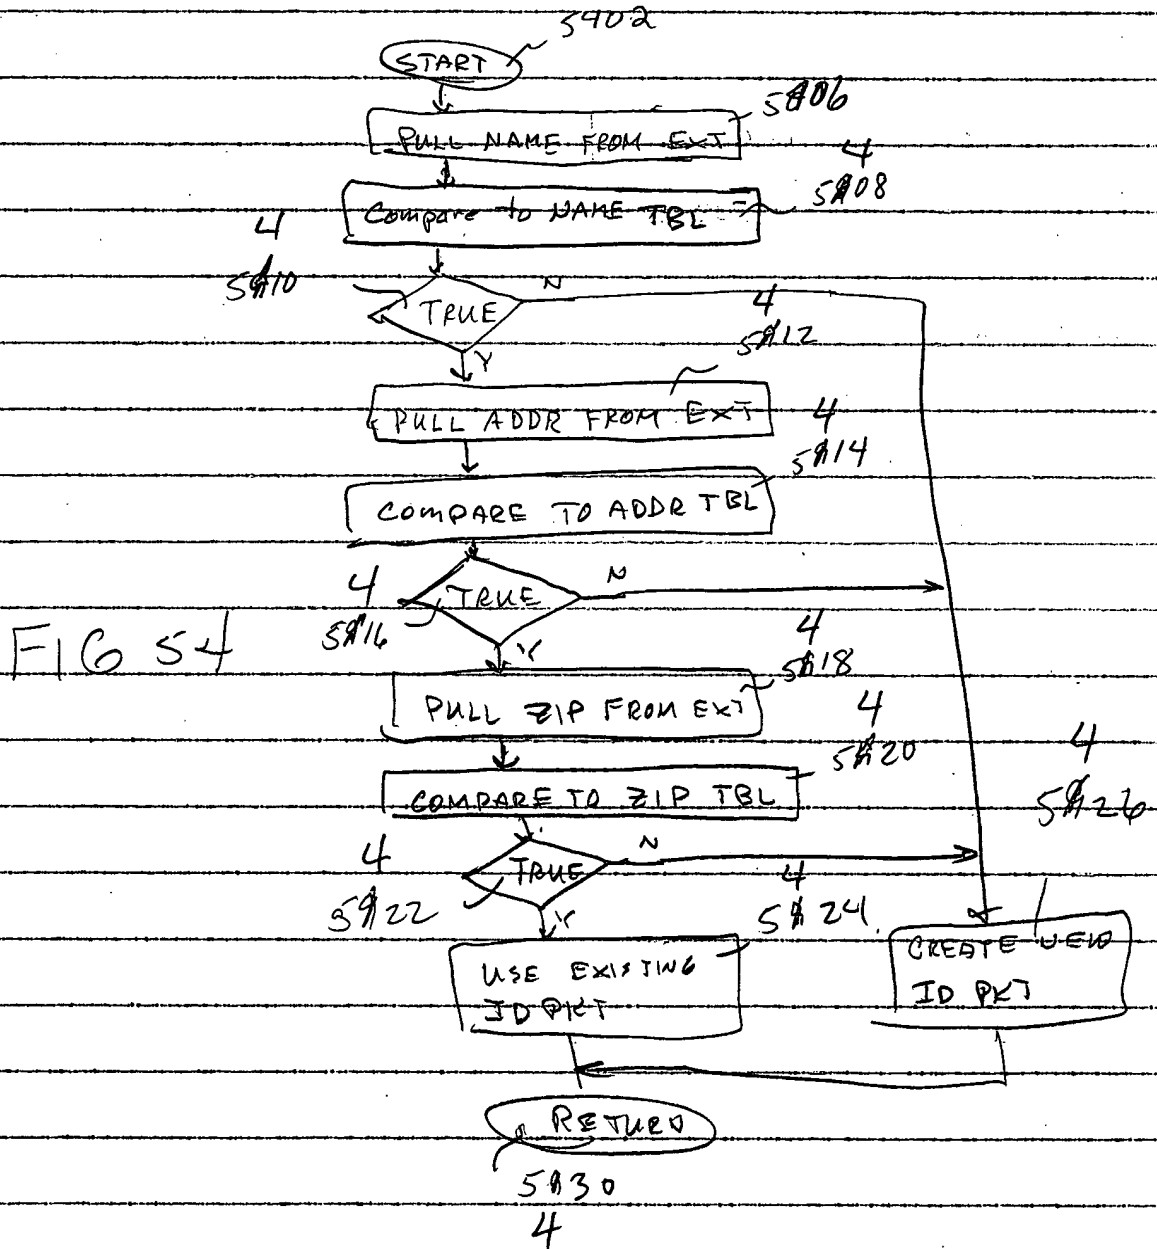 5402
START
5406
PULL NAME FROM EXT
4
5408
Compare to NAME TBL
4
5410
N
TRUE
Y
4
5412
PULL ADDR FROM EXT
4
5414
COMPARE TO ADDR TBL
4
5416
N
TRUE
Y
FIG 54
4
5418
PULL ZIP FROM EXT
4
5420
COMPARE TO ZIP TBL
4
5426
4
5422
N
TRUE
Y
4
5424
USE EXISTING
ID PKT
CREATE NEW
ID PKT
RETURN
5430
4